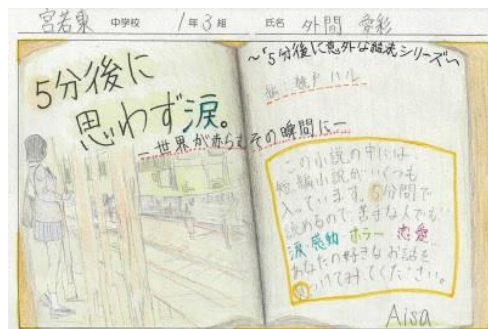 宮若東 中学校 1年3組 氏名 外間 愛彩
5分後に
思わず涙。
―世界が赤らむその瞬間に―
～「5分後に意外な結末シリーズ～
編・桃戸ハル
この小説の中には、
短編小説がいくつも
入っています。5分間で
読めるので苦手な人でも
涙・感動・ホラー・恋愛
あなたの好きなお話を
見つけてみてください。
Aisa